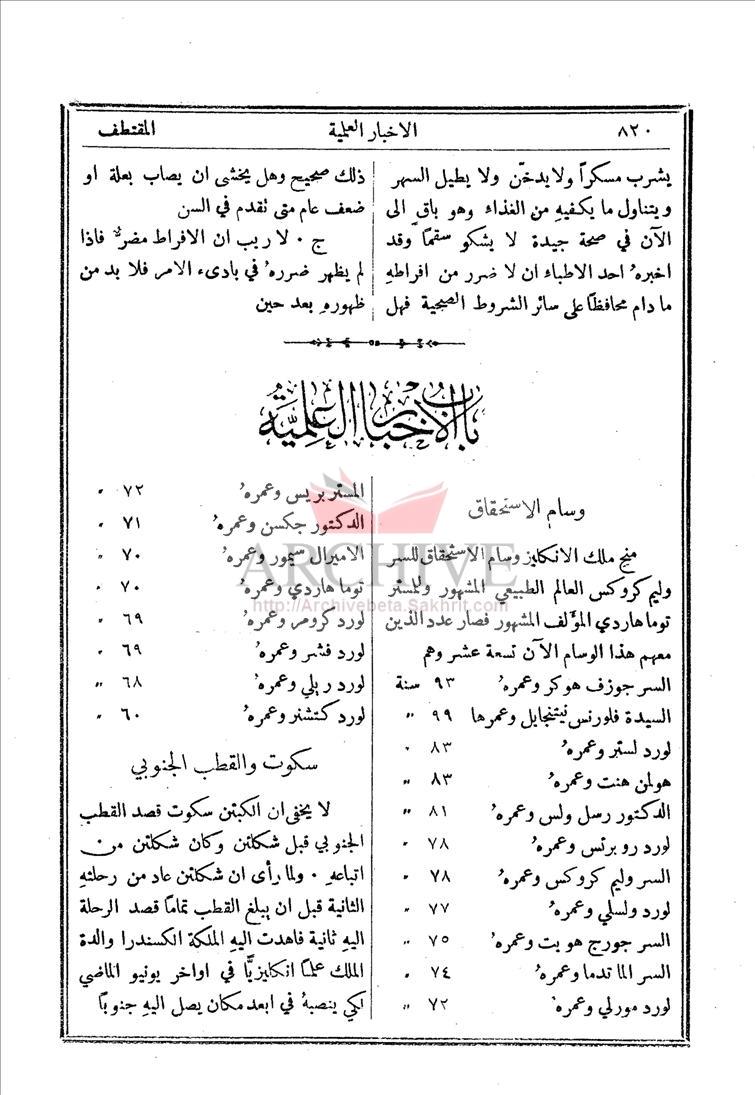 ٨٢٠
الاخبار العلمية
المقتطف
يشرب مسكراً ولا يدخّن ولا يطيل السهر
ويتناول ما يكفيهِ من الغذاء وهو باقٍ الى
الآن في صحة جيدة لا يشكو سقماً وقد
اخبرهُ احد الاطباء ان لا ضرر من افراطهِ
ما دام محافظاً على سائر الشروط الصحية فهل
ذلك صحيح وهل يخشى ان يصاب بعلة او
ضعف عام متى تقدم في السن
ج ٠ لا ريب ان الافراط مضرٌّ فاذا
لم يظهر ضررهُ في بادىء الامر فلا بد من
ظهورهِ بعد حين
باب الاخبار العلمية
وسام الاستحقاق
منح ملك الانكليز وسام الاستحقاق للسر
وليم كروكس العالم الطبيعي المشهور وللمستر
توما هاردي المؤلف المشهور فصار عدد الذين
معهم هذا الوسام الآن تسعة عشر وهم
السر جوزف هوكر وعمرهُ ٩٣ سنة
السيدة فلورنس نيتنجايل وعمرها ٩٩ "
لورد لستر وعمرهُ ٨٣ "
هولمن هنت وعمرهُ ٨٣ "
الدكتور رسل ولس وعمرهُ ٨١ "
لورد روبرتس وعمرهُ ٧٨ "
السر وليم كروكس وعمرهُ ٧٨ "
لورد ولسلي وعمرهُ ٧٧ "
السر جورج هويت وعمرهُ ٧٥ "
السر الما تدما وعمرهُ ٧٤ "
لورد مورلي وعمرهُ ٧٢ "
المستر بريس وعمرهُ ٧٢ "
الدكتور جكسن وعمرهُ ٧١ "
الاميرال سيمور وعمرهُ ٧٠ "
توما هاردي وعمرهُ ٧٠ "
لورد كرومر وعمرهُ ٦٩ "
لورد فشر وعمرهُ ٦٩ "
لورد ريلي وعمرهُ ٦٨ "
لورد كتشنر وعمرهُ ٦٠ "
سكوت والقطب الجنوبي
لا يخفى ان الكبتن سكوت قصد القطب
الجنوبي قبل شكلتن وكان شكلتن من
اتباعهِ ٠ ولما رأى ان شكلتن عاد من رحلتهِ
الثانية قبل ان يبلغ القطب تماماً قصد الرحلة
اليهِ ثانية فاهدت اليهِ الملكة الكسندرا والدة
الملك علماً انكليزيًّا في اواخر يونيو الماضي
لكي ينصبهُ في ابعد مكان يصل اليهِ جنوباً
ARCHIVE
http://Archivebeta.Sakhrit.com